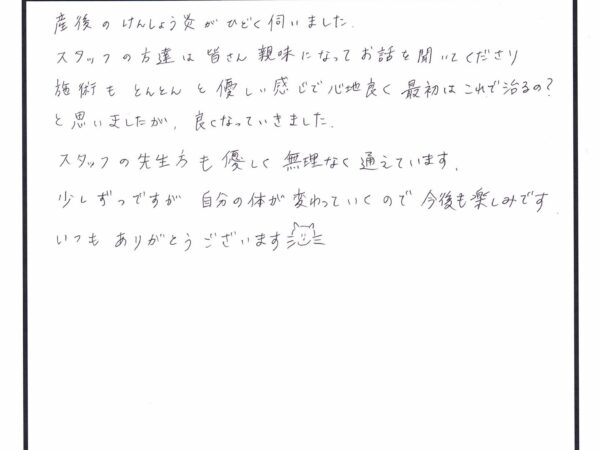 産後のけんしょう炎がひどく伺いました.
スタッフの方達は皆さん親味になってお話を聞いてくださり
施術もとんとんと優しい感じで心地良く最初はこれで治るの?
と思いましたが,良くなっていきました.
スタッフの先生方も優しく無理なく通えています.
少しずつですが 自分の体が変わっていくので今後も楽しみです
いつもありがとうございます